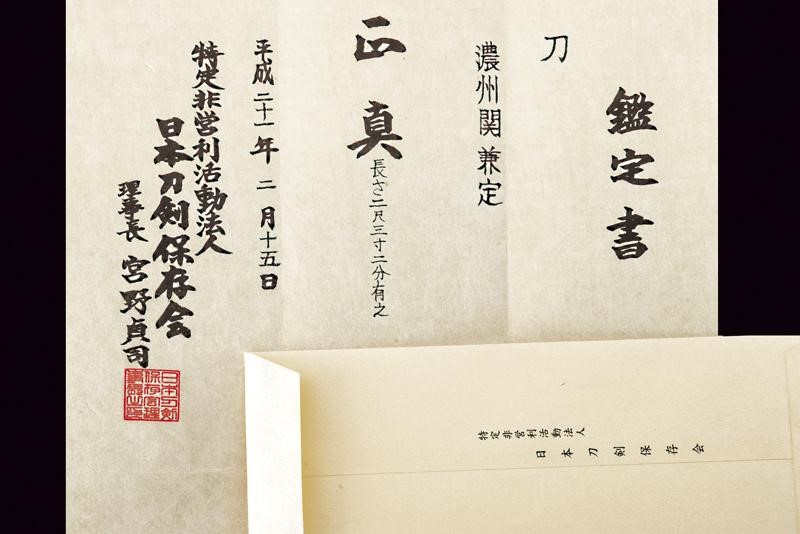 鑑定書
刀
濃州関兼定
正真
長さ二尺三寸二分有之
平成二十一年二月十五日
特定非営利活動法人
日本刀剣保存会
理事長 宮野貞司
特定非営利活動法人
日本刀剣保存会